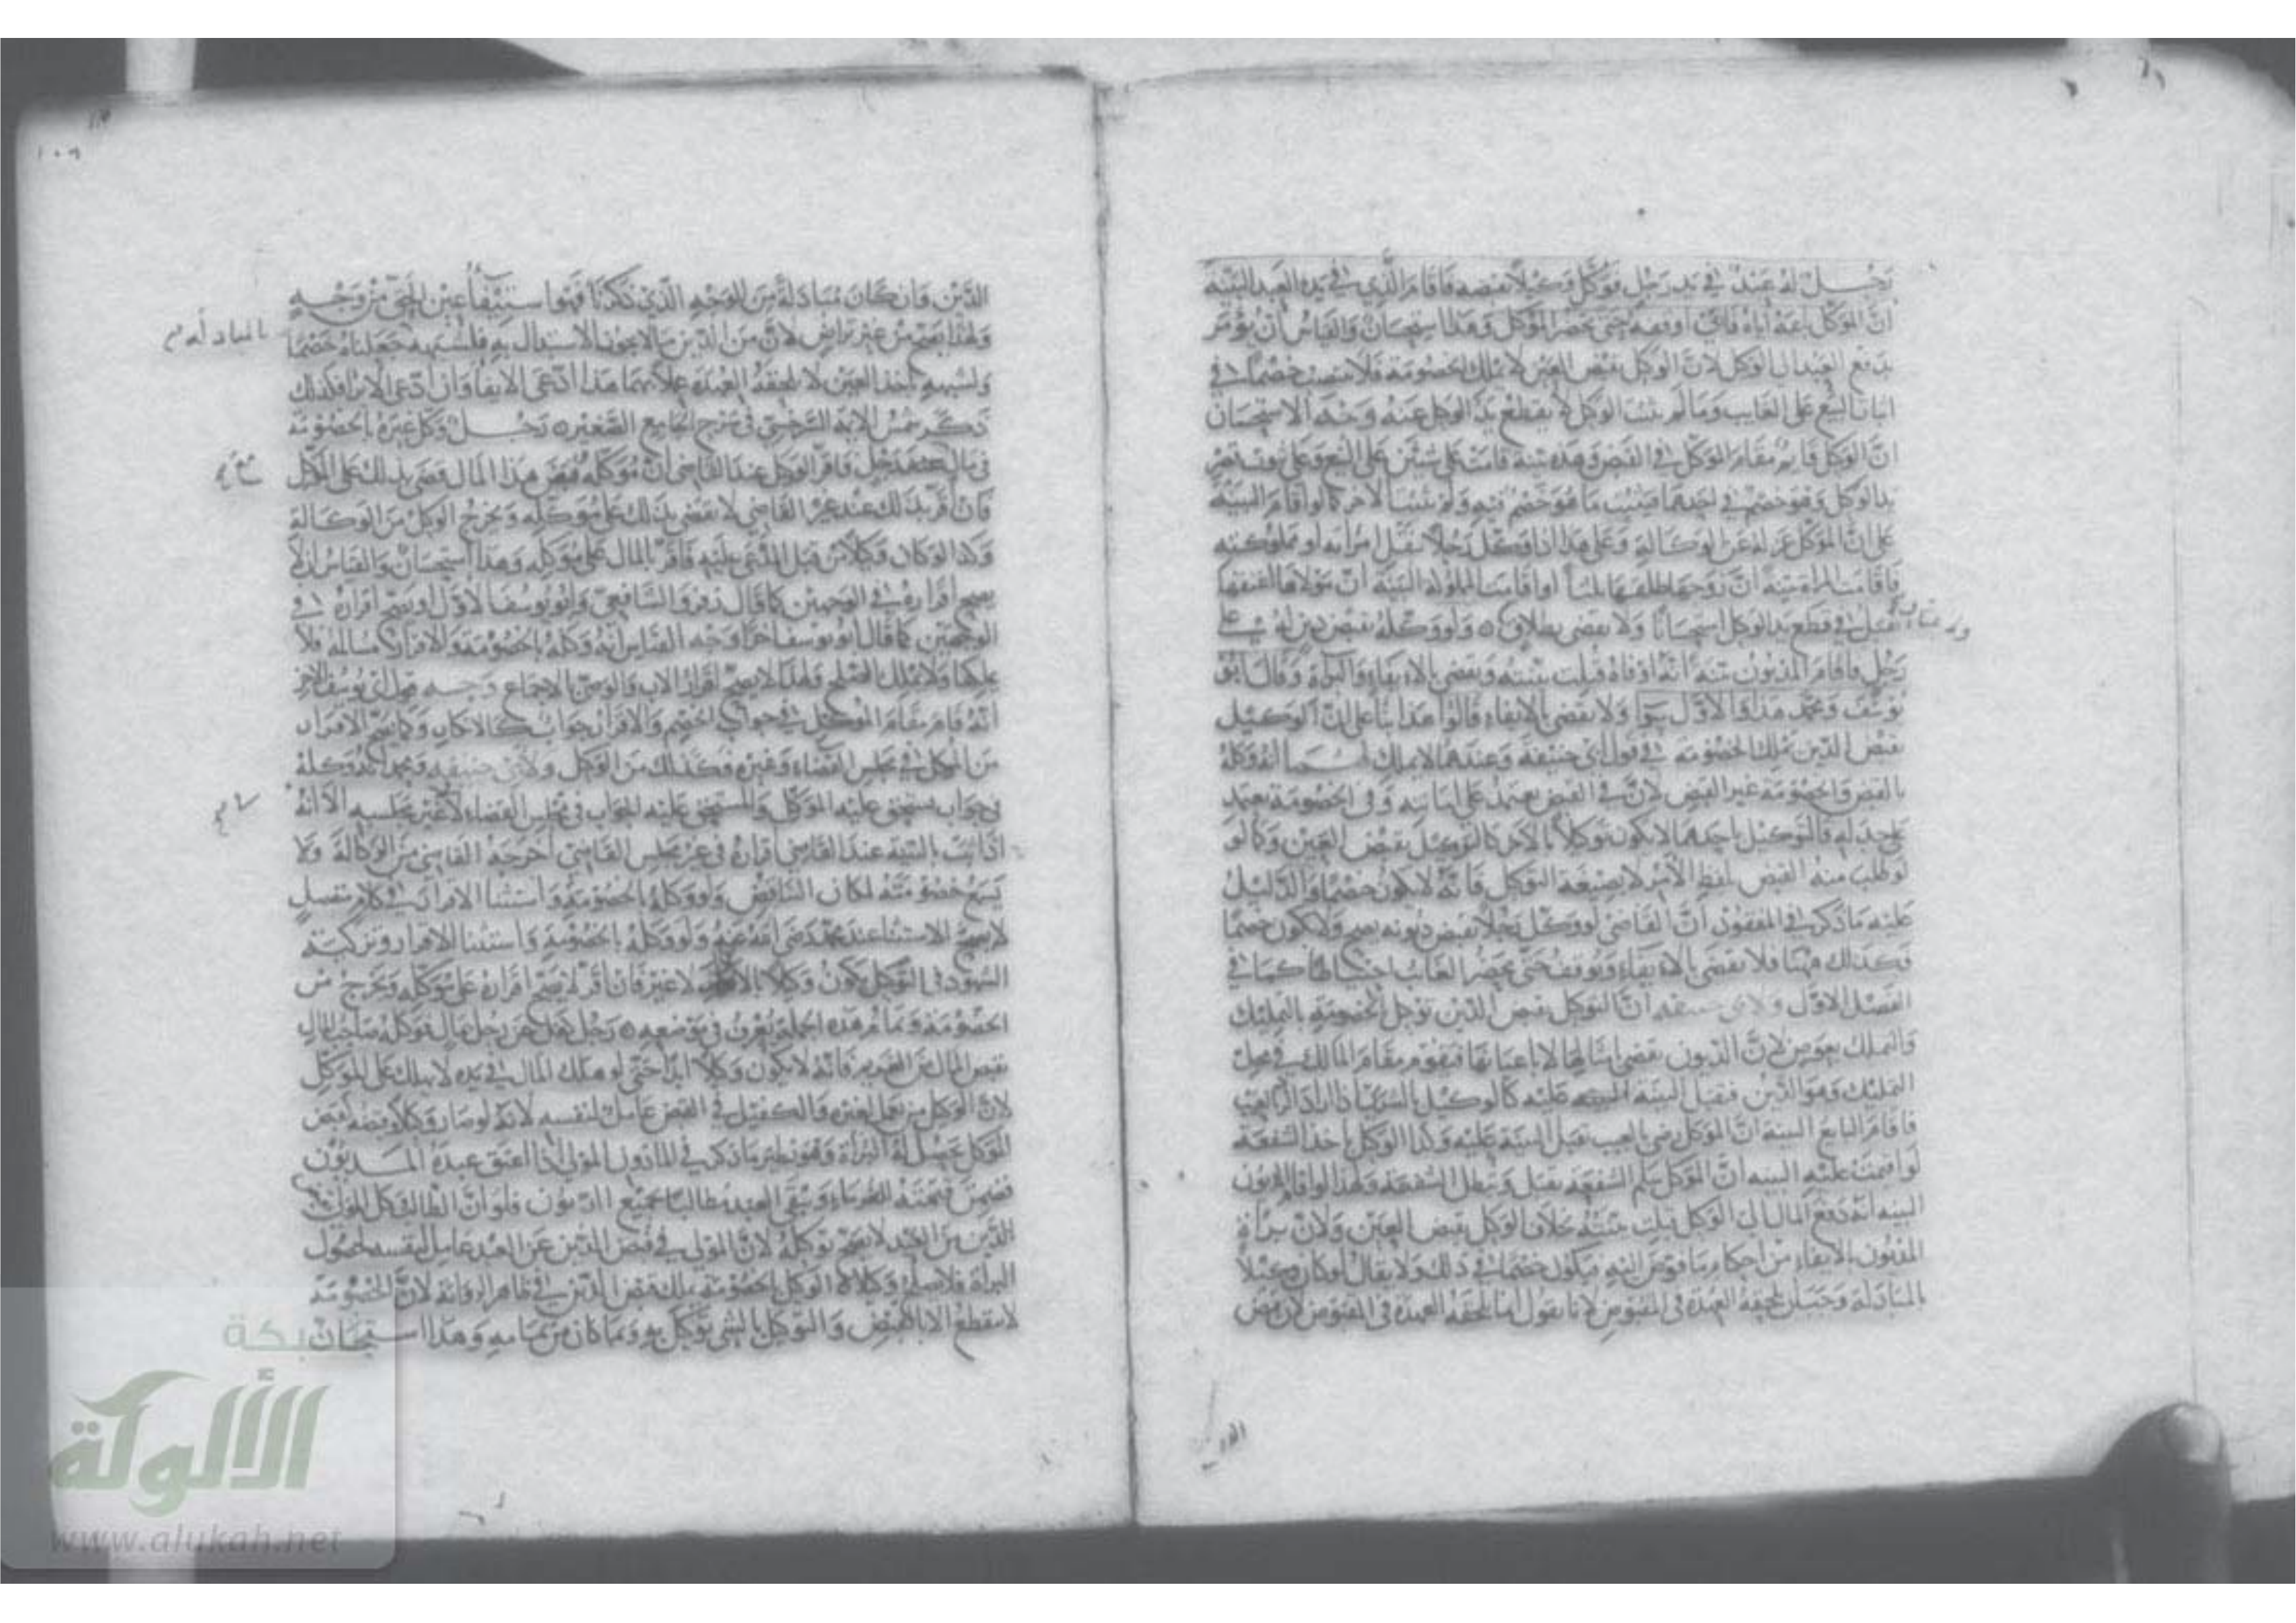 رجل له عبد في يد رجل فوكل وكيلا بقبضه فاقام الذي في يده العبد البينة
ان الموكل باعه اياه فاني اوقفه حتى يحضر الموكل وهذا استحسان والقياس ان يؤمر
بدفع العبد الى الوكيل لان الوكيل بقبض العين لا يملك الخصومة فلا ينتصب خصما في
اثبات البيع على الغايب وما لم يثبت الوكيل لا يقطع يد الوكيل عنه وجه الاستحسان
ان الوكيل قايم مقام الموكل في القبض وهذه بينة قامت على شيئين على البيع وعلى
يد الوكيل وهو خصم في احدهما فيثبت ما هو خصم فيه ولم يثبت الاخر كما لو اقام البينة
على ان الموكل عزله عن الوكالة وعلى هذا اذا وكل رجلا بنقل امراته او مملوكته
فاقامت المراة بينة ان زوجها طلقها ثلثا او اقامت المملوكة البينة ان مولاها اعتقها
تقبل في قطع يد الوكيل استحسانا ولا يقضى بطلاق ولو وكله بقبض دين له على
رجل فاقام المديون بينة انه اوفاه قبلت بينته ويقضى بالايفاء والبراءة وقال ابو
يوسف ومحمد هذا والاول سوا ولا يقضى بالايفاء قالوا هذا بناء على ان الوكيل
بقبض الدين يملك الخصومة في قول ابي حنيفة وعندهما لا يملك لهما انه وكله
بالقبض والخصومة غير القبض لان في القبض يعتمد على امانته وفي الخصومة يعتمد
على جداله فالتوكيل باحدهما لا يكون توكيلا بالاخر كالتوكيل بقبض العين وكما لو
لو طلب منه القبض بلفظ الامر لا بصيغة التوكيل فانه لا يكون خصما والدليل
عليه ما ذكر في المفقود ان القاضي لو وكل رجلا بقبض ديونه يصح ولا يكون خصما
فكذلك ههنا فلا يقضى بالايفاء ويوقف حتى يحضر الغايب احتياطا كما في
الفصل الاول ولابي حنيفه ان التوكيل بقبض الدين توكيل بالتمليك
والتملك بعوض لان الديون تقضى بامثالها لا باعيانها فيقوم مقام المالك في محل
التمليك وهو الدين فتقبل البينة عليه كالوكيل بالشرا اذا اراد الرد بالعيب
فاقام البايع البينة ان الموكل رضي بالعيب تقبل البينة عليه وكذا الوكيل باخذ الشفعة
لو اقيمت عليه البينه ان الموكل سلم الشفعة تقبل وتبطل الشفعة ولهذا لو اقام المديون
البينه انه دفع المال الى الوكيل قبلت بينته بخلاف الوكيل بقبض العين ولان براءة
المديون بالايفاء من احكام ما فوض اليه فيكون خصما في ذلك ولا يقال لو كان وكيلا
بالمبادلة وجب ان تلحقه العهدة في المقبوض لانا نقول انما تلحقه العهدة في المقبوض لان قبض
الدين وان كان مبادلة من الوجه الذي ذكرنا فهو استيفاء عين الحق من وجه
ولهذا يصح من غير تراض لان من الديون ما لا يجوز الاستبدال به فلشبهه جعلناه خصما
بالمبادلة
ولشبهه باخذ العين لا تلحقه العهدة عملا بهما هذا اذا ادعى الايفا وان ادعى الابرا فكذلك
ذكره شمس الايمة السرخسي في شرح الجامع الصغير رجل وكل غيره بالخصومة
في مال رجل فاقر الوكيل عند القاضي ان موكله قبض هذا المال قضي بذلك على الموكل
فان اقر بذلك عند غير القاضي لا يقضى بذلك على موكله ويخرج الوكيل من الوكالة
وكذا لو كان وكيلا من قبل المدعى عليه فاقر بالمال على موكله وهذا استحسان والقياس ان لا
يصح اقراره في الوجهين كما قال زفر والشافعي وابو يوسف الاول او يصح اقراره في
الوجهين كما قال ابو يوسف اخرا وجه القياس انه وكله بالخصومة والاقرار مسالمة فلا
يملكها ولا يملك الصلح ولهذا لا يصح اقرار الاب والوصي بالاجماع وجه قول ابي يوسف الاخر
انه قام مقام الموكل في جواب الخصم والاقرار جواب كالانكار وكما يصح الاقرار
من الموكل في مجلس القضاء وغيره فكذلك من الوكيل ولابي حنيفه ومحمد انه وكله
بجواب يستحق عليه الموكل والمستحق عليه الجواب في مجلس القضاء لا غير مجلسه الا انه
اذا ثبت بالبينة عند القاضي اقراره في غير مجلس القاضي اخرجه القاضي من الوكالة ولا
يسمع خصومته لمكان التناقض ولو وكله بالخصومة واستثنا الاقرار في كلام منفصل
لا يصح الاستثنا عند محمد رضي الله عنه ولو وكله بالخصومة واستثنا الاقرار وتزكية
الشهود في التوكيل يكون وكيلا بالانكار لا غير فان اقر لا يصح اقراره على موكله ويخرج من
الخصومة وتمام هذه الجملة تعرف في موضعه رجل كفل عن رجل بمال فوكله صاحب المال
بقبض المال من الغريم فانه لا يكون وكيلا ابدا حتى لو هلك المال في يده لا يهلك على الموكل
لان الوكيل من يعمل لغيره والكفيل في القبض عامل لنفسه لانه لو صار وكيلا وقبضه كقبض
الموكل يحصل له البراءة وهو نظير ما ذكر في الماذون المولى اذا اعتق عبده المديون
فضمن قيمته للغرماء ويبقى العبد مطالبا بجميع الديون فلو ان الطالب وكل المولى
الدين من العبد لا يصح توكيله لان المولى في قبض الدين عن العبد عامل لنفسه لحصول
البراءة فلا يصلح وكيلا الوكيل بالخصومة يملك قبض الدين في ظاهر الرواية لان الخصومة
لا تنقطع الا بالقبض والتوكيل بالشي توكيل به وبما كان من تمامه وهذا استحسان
شبكة
الألوكة
www.alukah.net